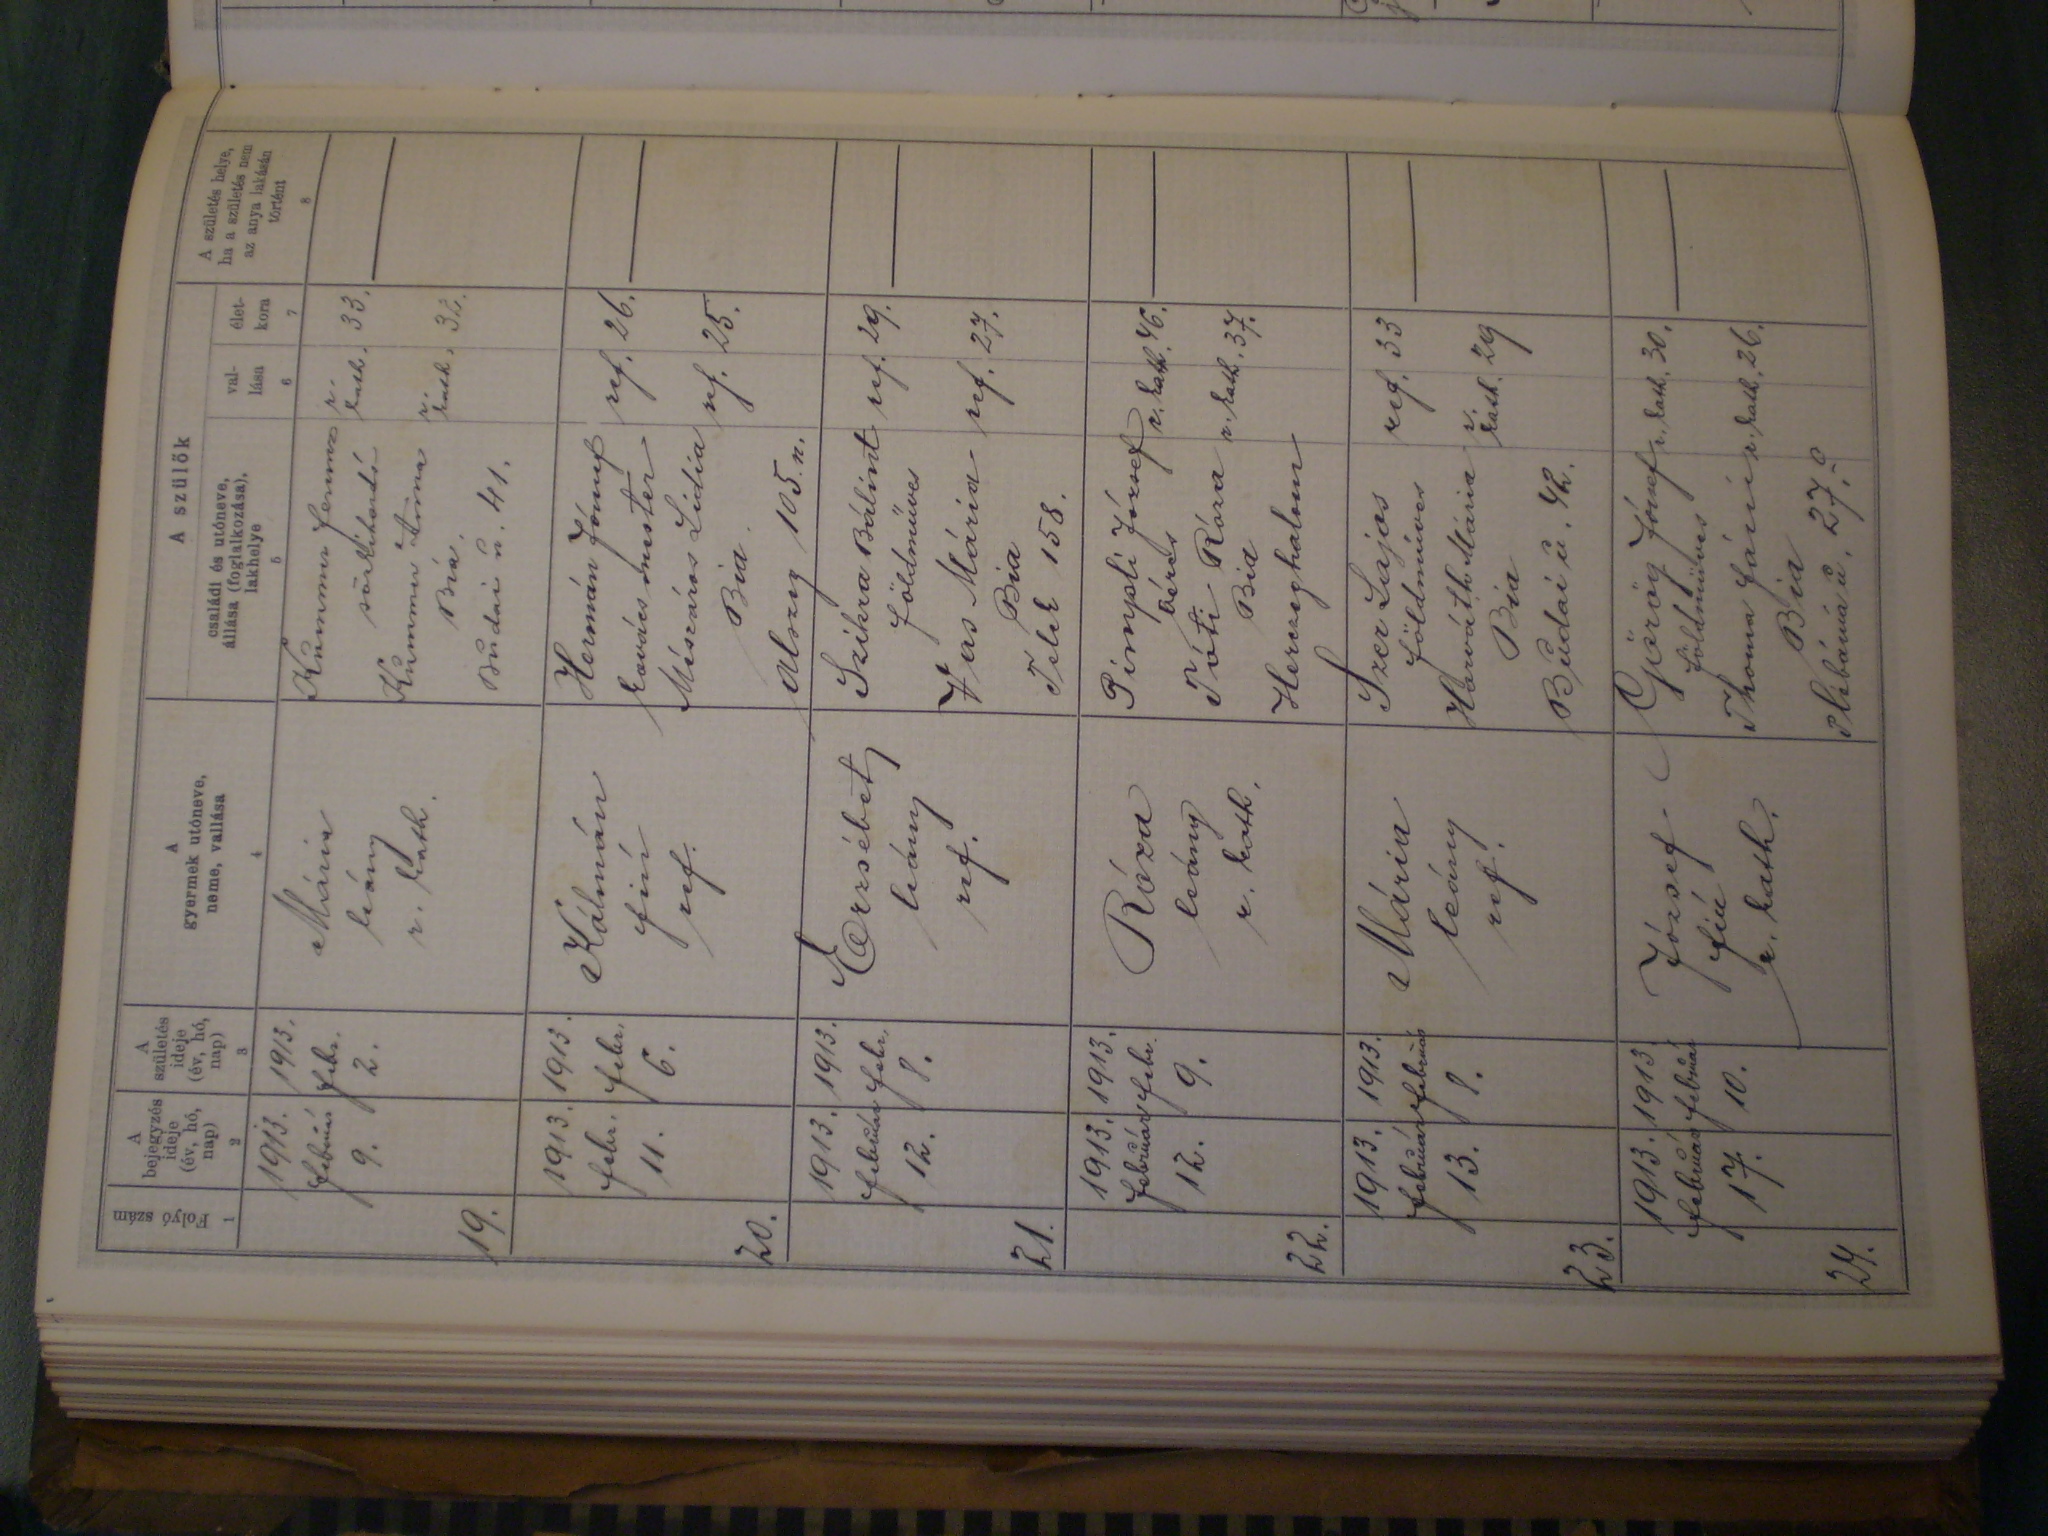 Folyó szám
1
A
bejegyzés
ideje
(év, hó,
nap)
2
A
születés
ideje
(év, hó,
nap)
3
A
gyermek utóneve,
neme, vallása
4
A szülők
családi és utóneve,
állása (foglalkozása),
lakhelye
5
val-
lása
6
élet-
kora
7
A születés helye,
ha a születés nem
az anya lakásán
történt
8
19.
1913.
február
9.
1913.
febr.
2.
Mária
leány
r. kath.
Kummer Ferenc
r. kath. 33.
Kummer Anna
r. kath. 32.
Bia.
Budai u. 41.
20.
1913.
febr.
11.
1913.
febr.
6.
Kálmán
fiú
ref.
Hermán József
ref. 26.
kovácsmester
Mészáros Lidia
ref. 25.
Bia.
Alszeg 105. n.
21.
1913.
február
12.
1913.
febr.
8.
Erzsébet
leány
ref.
Szikra Bálint
ref. 29.
földmüves
Vas Mária
ref. 27.
Bia
Telek 158.
22.
1913.
február
12.
1913.
febr.
9.
Róza
leány
r. kath.
József
r. kath. 46.
béres
Róza
r. kath. 37.
Bia
Herczeghalom
23.
1913.
február
13.
1913.
február
8.
Mária
leány
ref.
Szer Lajos
ref. 33
földmüves
Horváth Mária
r. kath. 29
Bia
Budai u. 42.
24.
1913.
február
17.
1913
február
10.
József
fiú
r. kath.
Görög József
r. kath. 30.
földmüves
Thoma
r. kath. 26.
Bia
Plébánia u. 27.